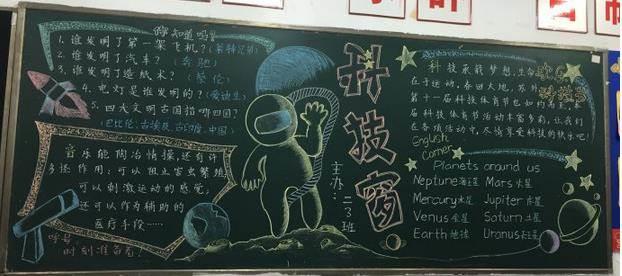 你知道吗?
1. 谁发明了第一架飞机?(莱特兄弟)
2. 谁发明了汽车?(奔驰)
3. 谁发明了造纸术?(蔡伦)
4. 电灯是谁发明的?(爱迪生)
5. 四大文明古国指哪四国?
(巴比伦、古埃及、古印度、中国)
音乐能陶冶情操,还有许
多作用:可以阻止害虫繁殖,
可以刺激运动的感觉,
还可以作为辅助的
医疗手段……
时刻准备着
科技窗
主办:二3班
科技承载梦想,生命
在于运动,春回大地,
第十一届科技体育节也如约而至,本
届科技体育节活动丰富多彩,让我们
在各项活动中,尽情享受科技的快乐吧!
English
Corner
Planets around us
Neptune海王星 Mars火星
Mercury水星 Jupiter木星
Venus金星 Saturn土星
Earth地球 Uranus天王星